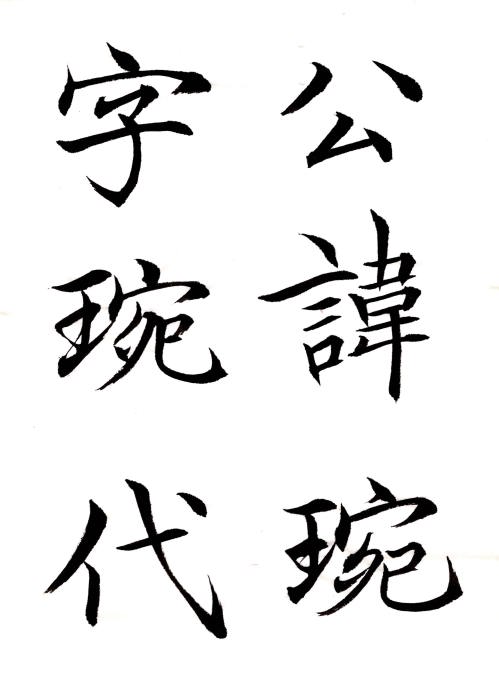 公諱琬
字琬代